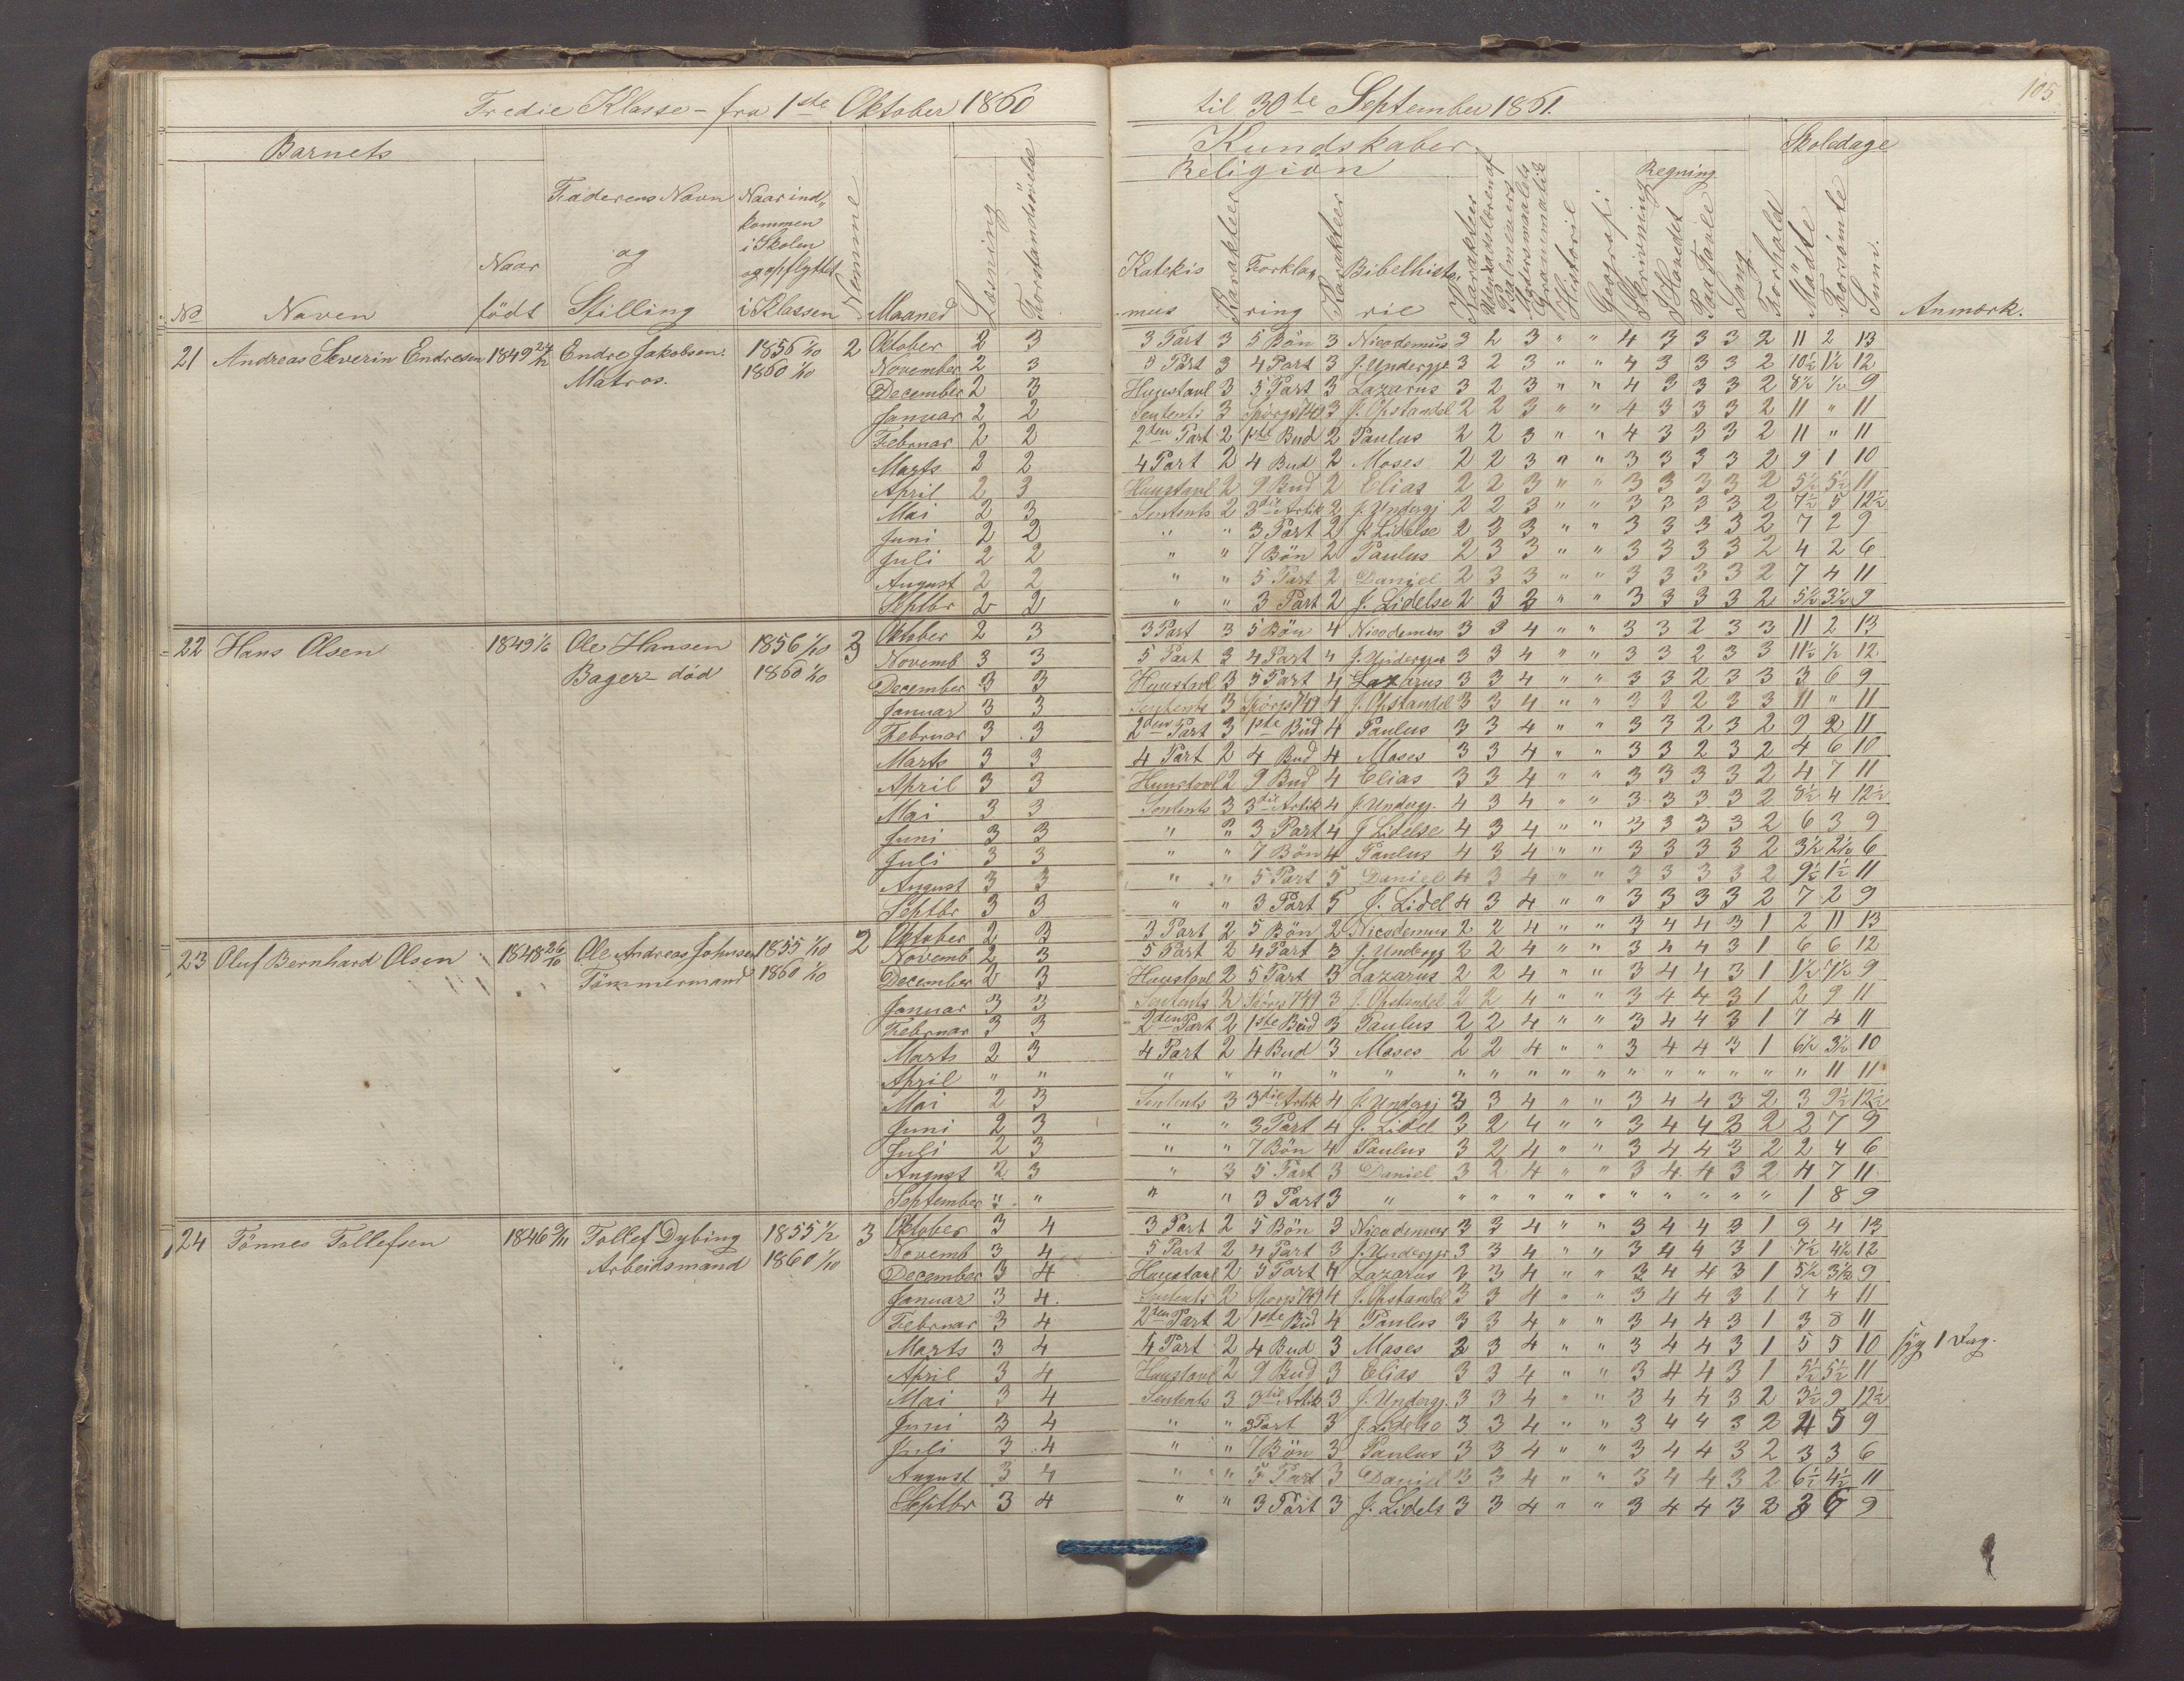 Tredie Klasse - fra 1ste Oktober 1860 til 30te September 1861.
105
Barnets
Kundskaber
Skoledage
Religion
Regning
No
Naven
Naar født
Faderens Navn og Stilling
Naar ind-kommen i Skolen og opflyttet i Klassen
Nemme
Maaned
Læsning
Forstandsøvelse
Katekismus
Karakteer
Forklaring
Karakteer
Bibelhistorie
Karakteer
Udenadslæren af Psalmevers
Modersmaalets Grammatik
Historie
Geografi
Skrivning
I Hovedet
Paa Tavle
Sang
Forhold
Mødte
Forsømte
Sum.
Anmærk.
21 Andreas Severin Endresen 1849 24/12 Endre Jakobsen. 1856 1/10 2 Oktober 2 3 3 Part 3 5 Bön 3 Nicodemus 3 2 3 " " 4 3 3 3 2 11 2 13
Matros. 1860 1/10 November 2 3 5 Part 3 4 Part 3 J. Undergjr 3 2 3 " " 4 3 3 3 2 10½ 1½ 12
December 2 3 Huustavl 3 5 Part 3 Lazarus 3 2 3 " " 4 3 3 3 2 8½ ½ 9
Januar 2 2 Sentents 3 Spörgs 749 3 J. Opstandel 2 2 3 " " 4 3 3 3 2 11 " 11
Februar 2 2 2den Part 2 1ste Bud 2 Paulus 2 2 3 " " 4 3 3 3 2 11 " 11
Marts 2 2 4 Part 2 4 Bud 2 Moses 2 2 3 " " 3 3 3 3 2 9 1 10
April 2 3 Huustavl 2 9 Bud 2 Elias 2 2 3 " " 3 3 3 3 2 5½ 5½ 11
Mai 2 3 Sentents 2 3die Artik 2 J. Undergj 2 2 3 " " 3 3 3 3 2 7½ 5 12½
Juni 2 2 " " 3 Part 2 J. Lidelse 2 3 3 " " 3 3 3 3 2 7 2 9
Juli 2 2 " " 7 Bön 2 Paulus 2 3 3 " " 3 3 3 3 2 4 2 6
August 2 2 " " 5 Part 2 Daniel 2 3 3 " " 3 3 3 3 2 7 4 11
Septbr 2 2 " " 3 Part 2 J. Lidelse 2 3 3 " " 3 3 3 3 2 5½ 3½ 9
22 Hans Olsen 1849 1/6 Ole Hansen 1856 1/10 3 Oktober 2 3 3 Part 3 5 Bön 4 Nicodemus 3 3 4 " " 3 3 2 3 3 11 2 13
Bager - död 1860 1/10 Novemb 3 3 5 Part 3 4 Part 4 J. Undergjr 3 3 4 " " 3 3 2 3 3 11½ ½ 12
December 3 3 Huustavl 3 5 Part 4 Lazarus 3 3 4 " " 3 3 2 3 3 3 6 9
Januar 3 3 Sentents 3 Spörgs 749 4 J. Opstandel 3 3 4 " " 3 3 2 3 3 11 " 11
Februar 3 3 2den Part 3 1ste Bud 4 Paulus 3 3 4 " " 3 3 2 3 2 9 2 11
Marts 3 3 4 Part 2 4 Bud 4 Moses 3 3 4 " " 3 3 2 3 2 4 6 10
April 3 3 Huustavl 2 9 Bud 4 Elias 3 3 4 " " 3 3 3 3 2 4 7 11
Mai 3 3 Sentents 3 3die Artik 4 J. Undergj. 4 3 4 " " 3 3 3 3 2 8½ 4 12½
Juni 3 3 " " 3 Part 4 J Lidelse 4 3 4 " " 3 3 3 3 2 6 3 9
Juli 3 3 " " 7 Bön 4 Paulus 4 3 4 " " 3 3 3 3 2 3½ 2½ 6
August 3 3 " " 5 Part 5 Daniel 4 3 4 " " 3 3 3 3 2 9½ 1½ 11
Septbr 3 3 " " 3 Part 5 J. Lidel 4 3 4 " " 3 3 3 3 2 7 2 9
23 Oluf Bernhard Olsen 1848 26/10 Ole Andreas Johnsen 1855 1/10 2 Oktober 2 3 3 Part 2 5 Bön 2 Nicodemus 2 2 4 " " 3 4 4 3 1 2 11 13
Tömmermand 1860 1/10 Novemb 2 3 5 Part 2 4 Part 3 J. Undergj 2 2 4 " " 3 4 4 3 1 6 6 12
December 2 3 Huustavl 2 5 Part 3 Lazarus 2 2 4 " " 3 4 4 3 1 1½ 7½ 9
Januar 3 3 Sentents 2 Spörgs 749 3 J. Opstandel 2 2 4 " " 3 4 4 3 1 2 9 11
Februar 3 3 2den Part 2 1ste Bud 3 Paulus 2 2 4 " " 3 4 4 3 1 7 4 11
Marts 2 3 4 Part 2 4 Bud 3 Moses 2 2 4 " " 3 4 4 3 1 6½ 3½ 10
April " " " " " " " " " " " " " " " " " " 11 11
Mai 2 3 Sentents 3 3die Artik 4 J. Undergj 3 3 4 " " 3 4 4 3 2 3 9½ 12½
Juni 2 3 " " 3 Part 4 J. Lidel 3 2 4 " " 3 4 4 3 2 2 7 9
Juli 2 3 " " 7 Bön 4 Paulus 3 2 4 " " 3 4 4 3 2 2 4 6
August 2 3 " 3 5 Part 3 Daniel 3 2 4 " " 3 4 4 3 2 4 7 11
September " " " " 3 Part 3 " " " " " " " " " " " 1 8 9
24 Tönnes Tollefsen 1846 9/11 Tollef Dybing 1855 1/2 3 Oktober 3 4 3 Part 2 5 Bön 3 Nicodemus 3 3 4 " " 3 4 4 3 1 9 4 13
Arbeidsmand 1860 1/10 Novemb 3 4 5 Part 2 4 Part 3 J. Undergjr 3 3 4 " " 3 4 4 3 1 7½ 4½ 12
December 3 4 Huustavl 2 5 Part 4 Lazarus 3 3 4 " " 3 4 4 3 1 5½ 3½ 9
Januar 3 4. Sentents 2 Spörgs 749 4 J. Opstandel 3 3 4 " " 3 4 4 3 1 7 4 11
Februar 3 4 2den Part 2 1ste Bud 4 Paulus 3 3 4 " " 3 4 4 3 1 3 8 11
Marts 3 4 4 Part 2 4 Bud 3 Moses 3 3 4 " " 3 4 4 3 1 5 5 10 syg 1 Dag.
April 3 4 Huustavl 2 9 Bud 3 Elias 3 3 4 " " 3 4 4 3 1 5½ 5½ 11
Mai 3 4 Sentents 3 3die Artik 3 J. Undergj. 3 3 4 " " 3 4 4 3 2 3½ 9 12½
Juni 3 4 " " 3 Part 3 J. Lidelse 3 3 4 " " 3 4 4 3 2 4 5 9
Juli 3 4 " " 7 Bön 3 Paulus 3 3 4 " " 3 4 4 3 2 3 3 6
August 3 4 " " 5 Part 3 Daniel 3 3 4 " " 3 4 4 3 2 6½ 4½ 11
Septbr 3 4 " " 3 Part 3 J. Lidels 3 3 4 " " 3 4 4 3 2 3 6 9